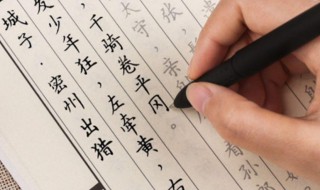 张，
太守，亲
看孙
千骑卷平冈。
发少年狂，左牵黄，右
城子·密州出猎